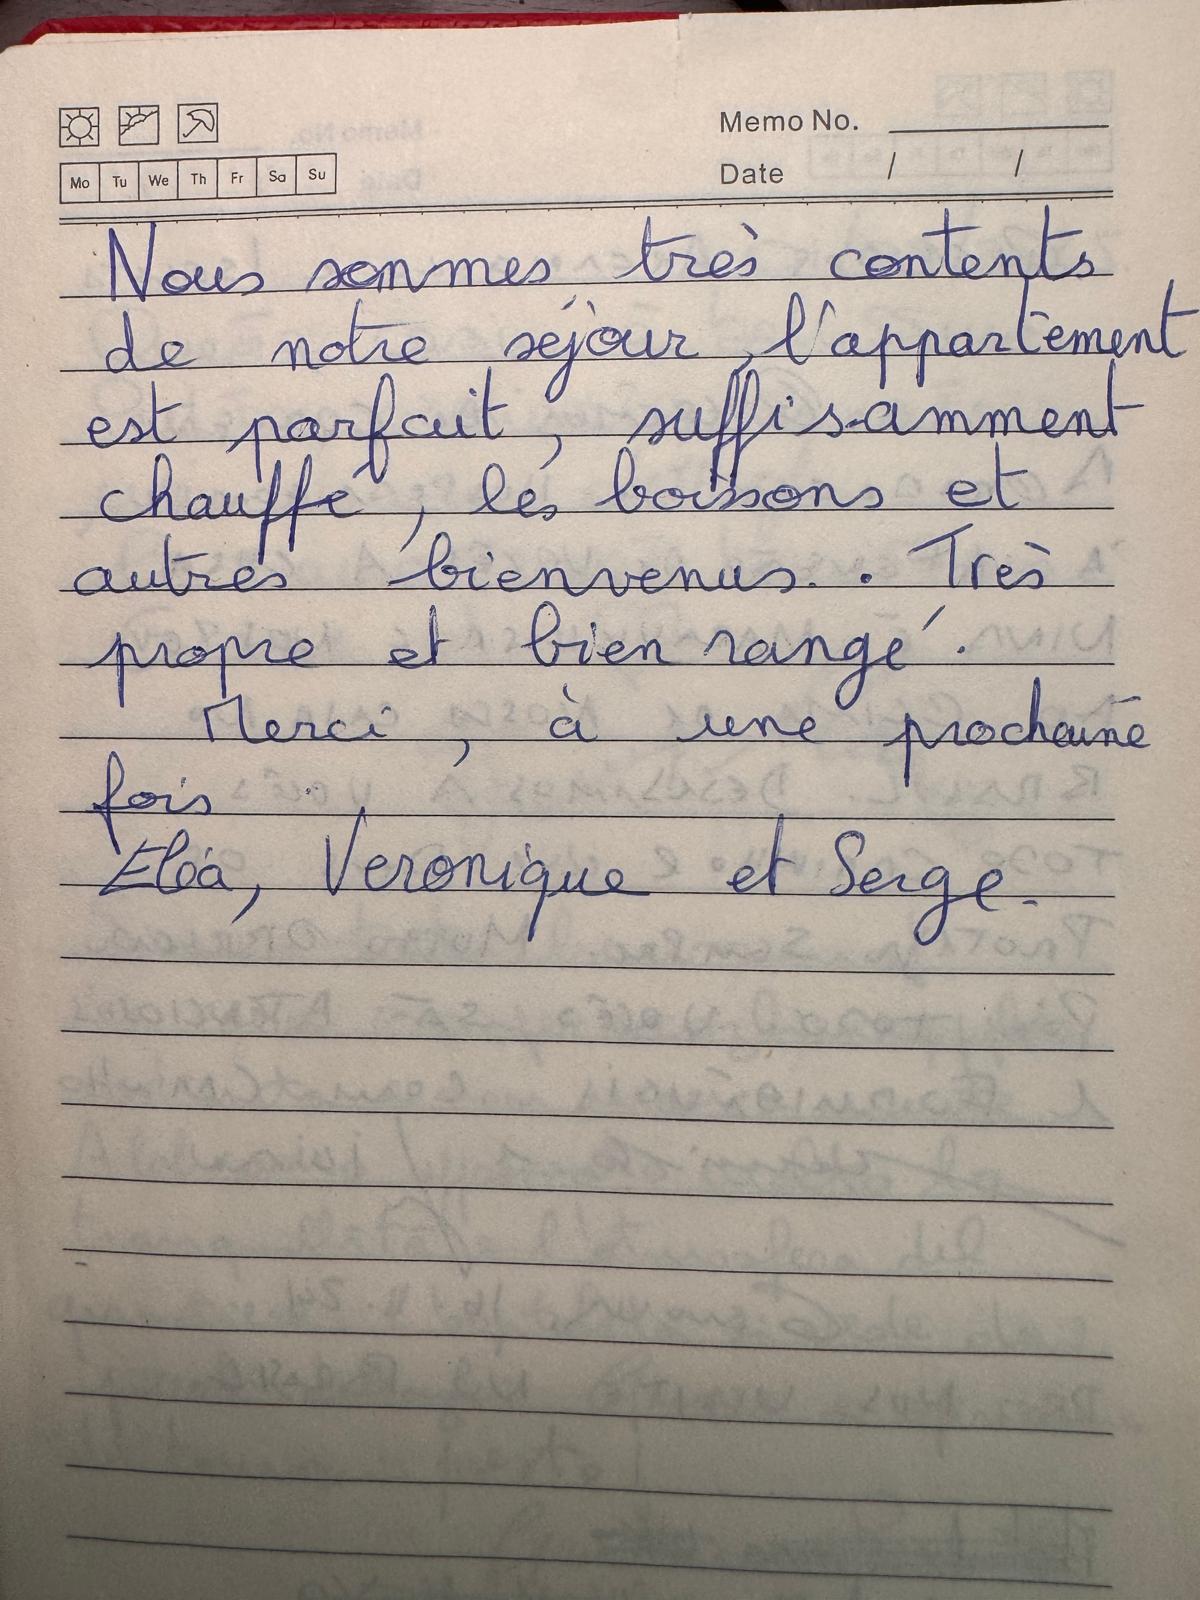 Memo No.
Mo Tu We Th Fr Sa Su
Date / /
Nous sommes très contents
de notre séjour, l'appartement
est parfait, suffisamment
chauffé, les boissons et
autres bienvenus.. Très
propre et bien rangé.
Merci, à une prochaine
fois
Eléa, Veronique et Serge.